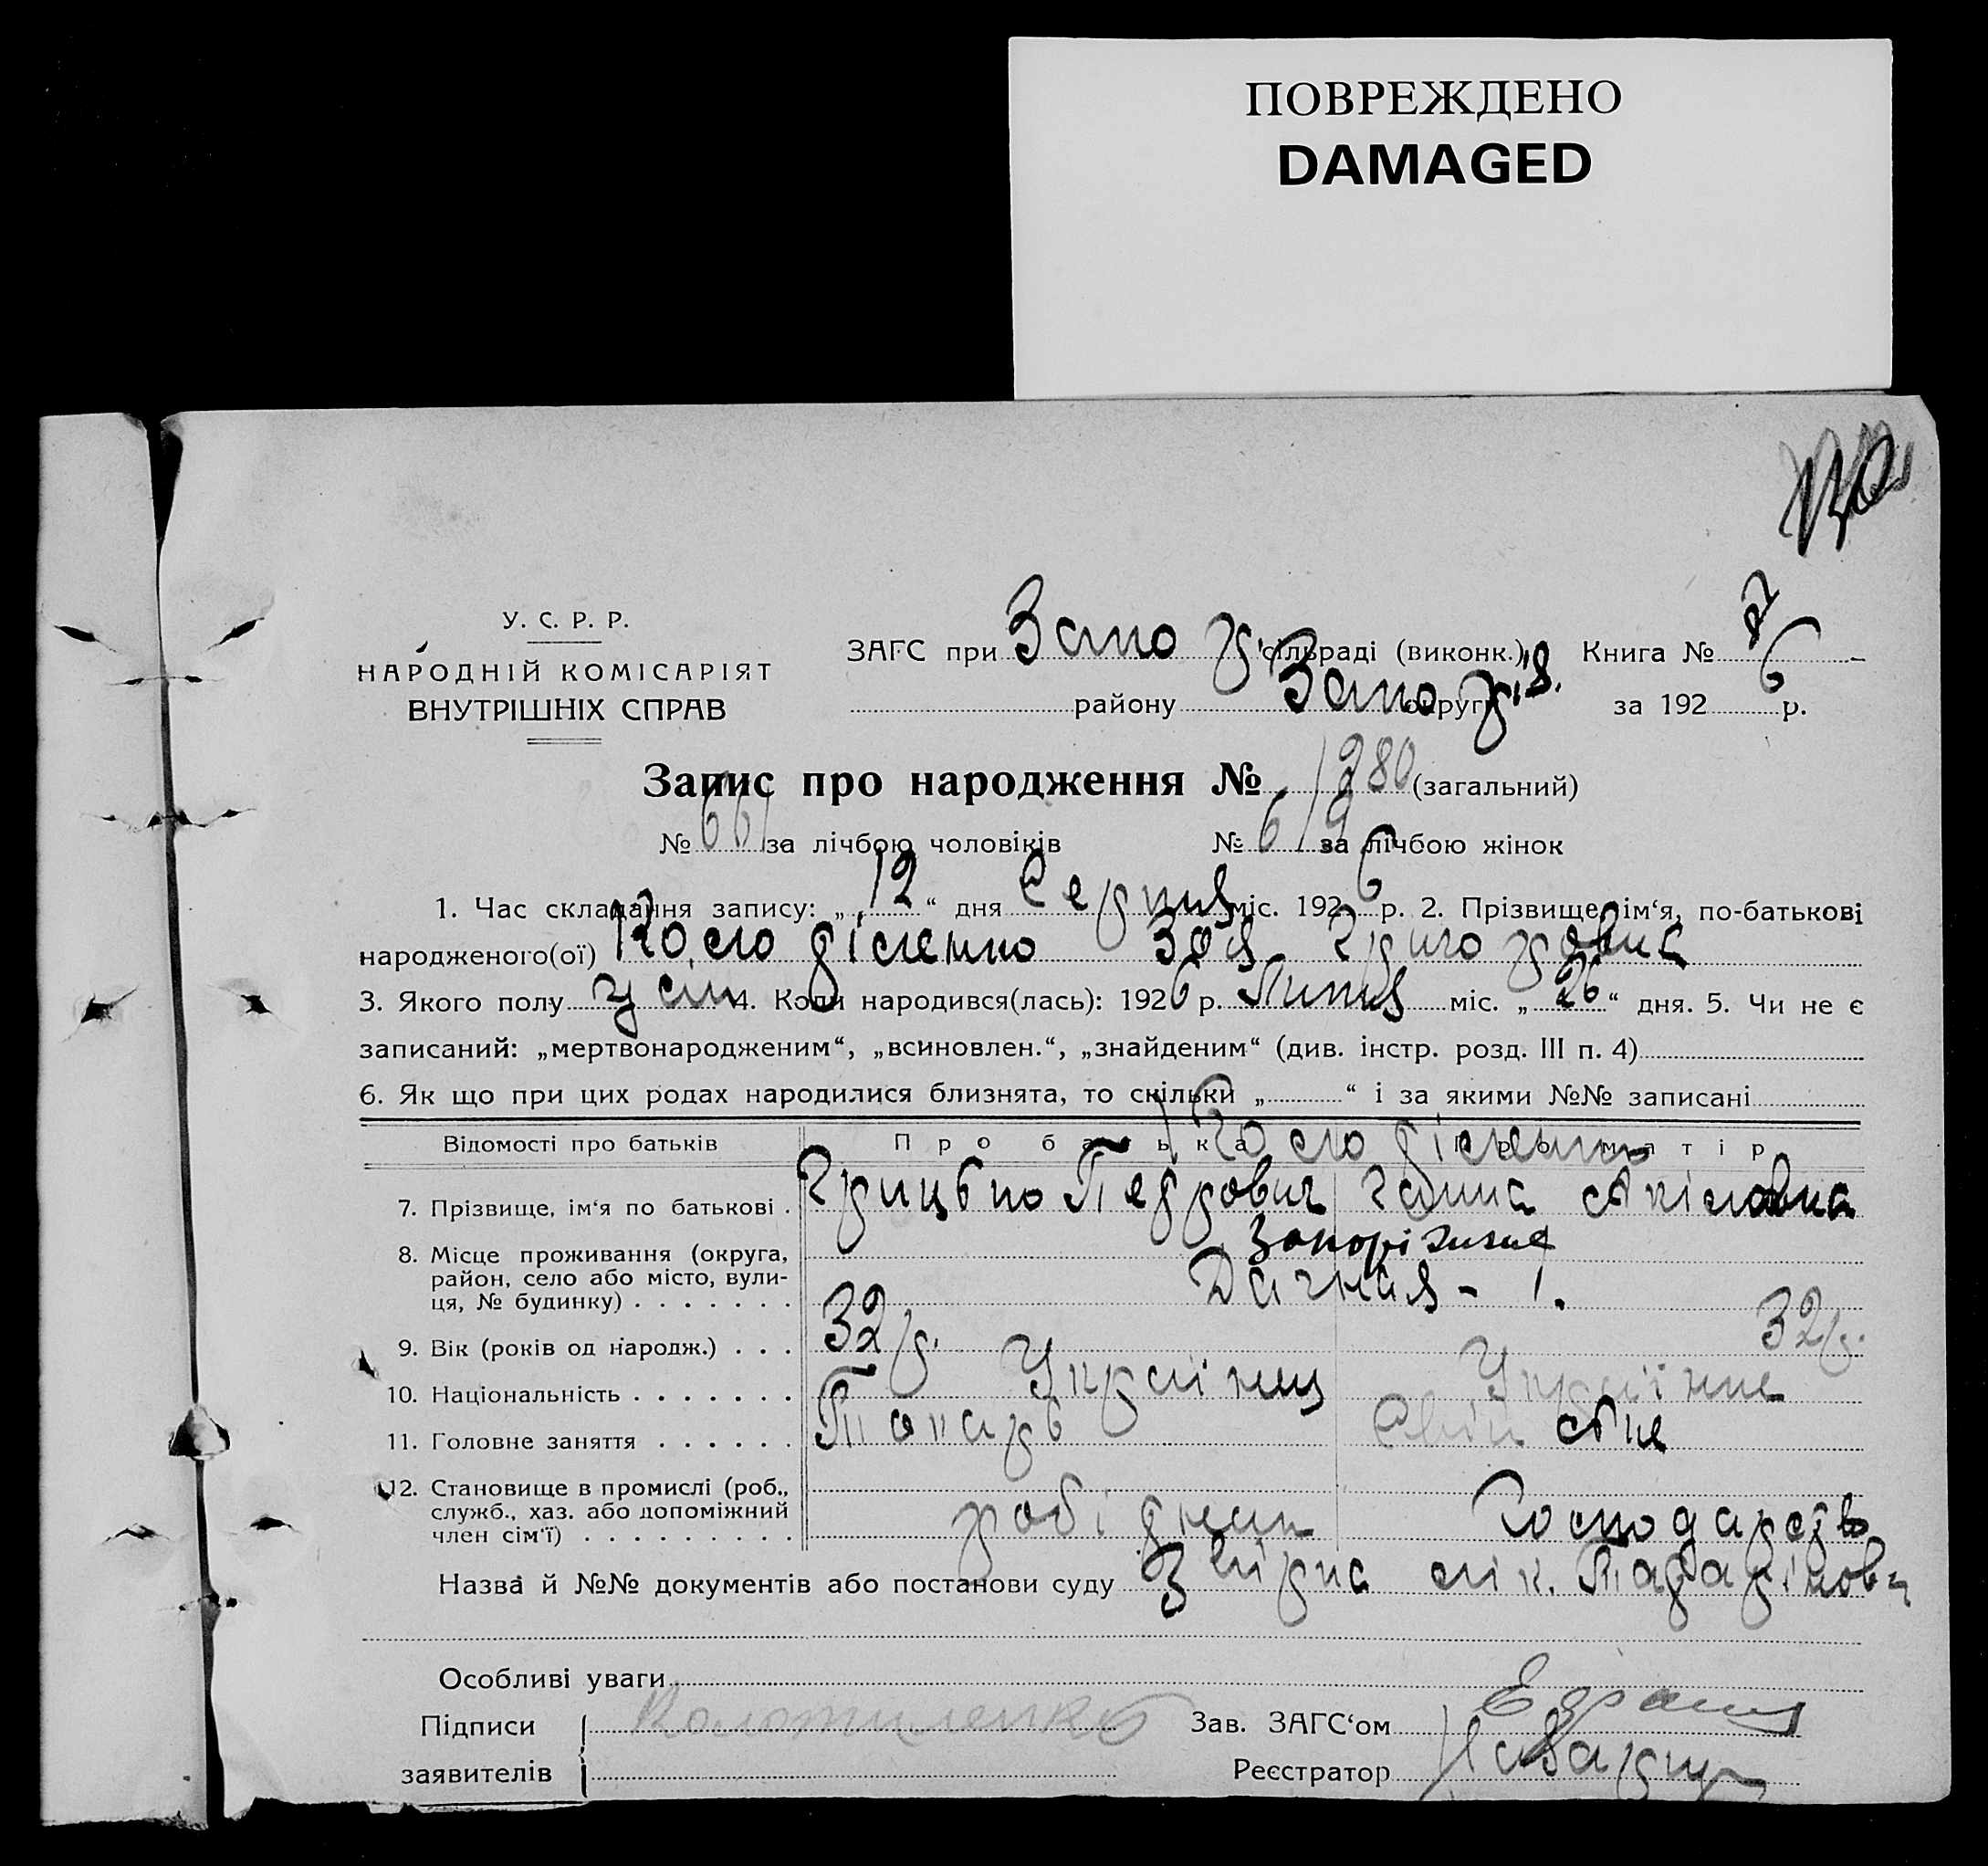 ПОВРЕЖДЕНО
DAMAGED
У. С. Р. Р.
НАРОДНІЙ КОМІСАРІЯТ
ВНУТРІШНІХ СПРАВ
ЗАГС при Запо сільраді (виконк.) Книга №
району Запо округи за 1926 р.
Запис про народження № 1280 (загальний)
№ 661 за лічбою чоловіків № 619 за лічбою жінок
1. Час складання запису: „12“ дня Серпня міс. 1926 р. 2. Прізвище, ім‘я, по-батькові
народженого(ої) Зоя Григоровна
3. Якого полу 4. Коли народився(лась): 1926 р. Липня міс. „26“ дня. 5. Чи не є
записаний: „мертвонародженим“, „всиновлен.“, „знайденим“ (див. інстр. розд. III п. 4)
6. Як що при цих родах народилися близнята, то скільки „ “ і за якими №№ записані
Відомості про батьків Про батька Про матір
7. Прізвище, ім‘я по батькові . Грицько Петрович Галина
8. Місце проживання (округа, район, село або місто, вули-ця, № будинку) . . . . . . . Запоріжжя
Дачная - 1.
9. Вік (років од народж.) . . . 32 р. 32 р.
10. Національність . . . . . . . Українец Українка
11. Головне заняття . . . . . . Токарь
12. Становище в промислі (роб., служб., хаз. або допоміжний член сім‘ї) . . . . . . . . . робідник Господарство
Назва й №№ документів або постанови суду
Особливі уваги
Підписи Зав. ЗАГС‘ом
заявителів Реєстратор